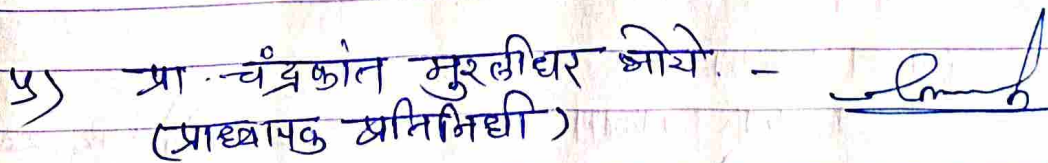 ५) प्रा. चंद्रकांत मुरलीधर ओये. -
(प्राध्यापक प्रतिनिधी)